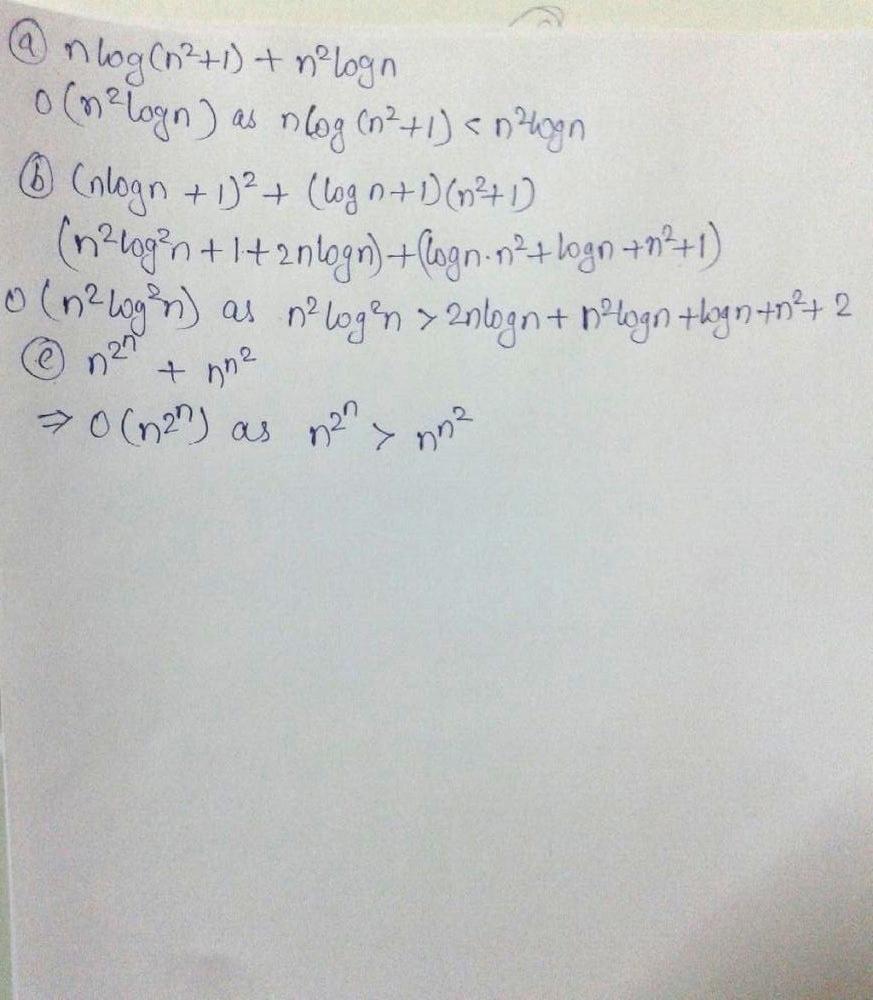 ⓐ n log(n²+1) + n²logn
O(n²logn) as nlog(n²+1) < n²logn
ⓑ (nlogn + 1)² + (log n+1)(n²+1)
(n²log²n + 1 + 2nlogn) + (logn·n² + logn + n² + 1)
O(n²log²n) as n²log²n > 2nlogn + n²logn + logn + n² + 2
ⓒ n^2^n + n^n^2
⇒ O(n2^n) as n^2^n > n^n^2